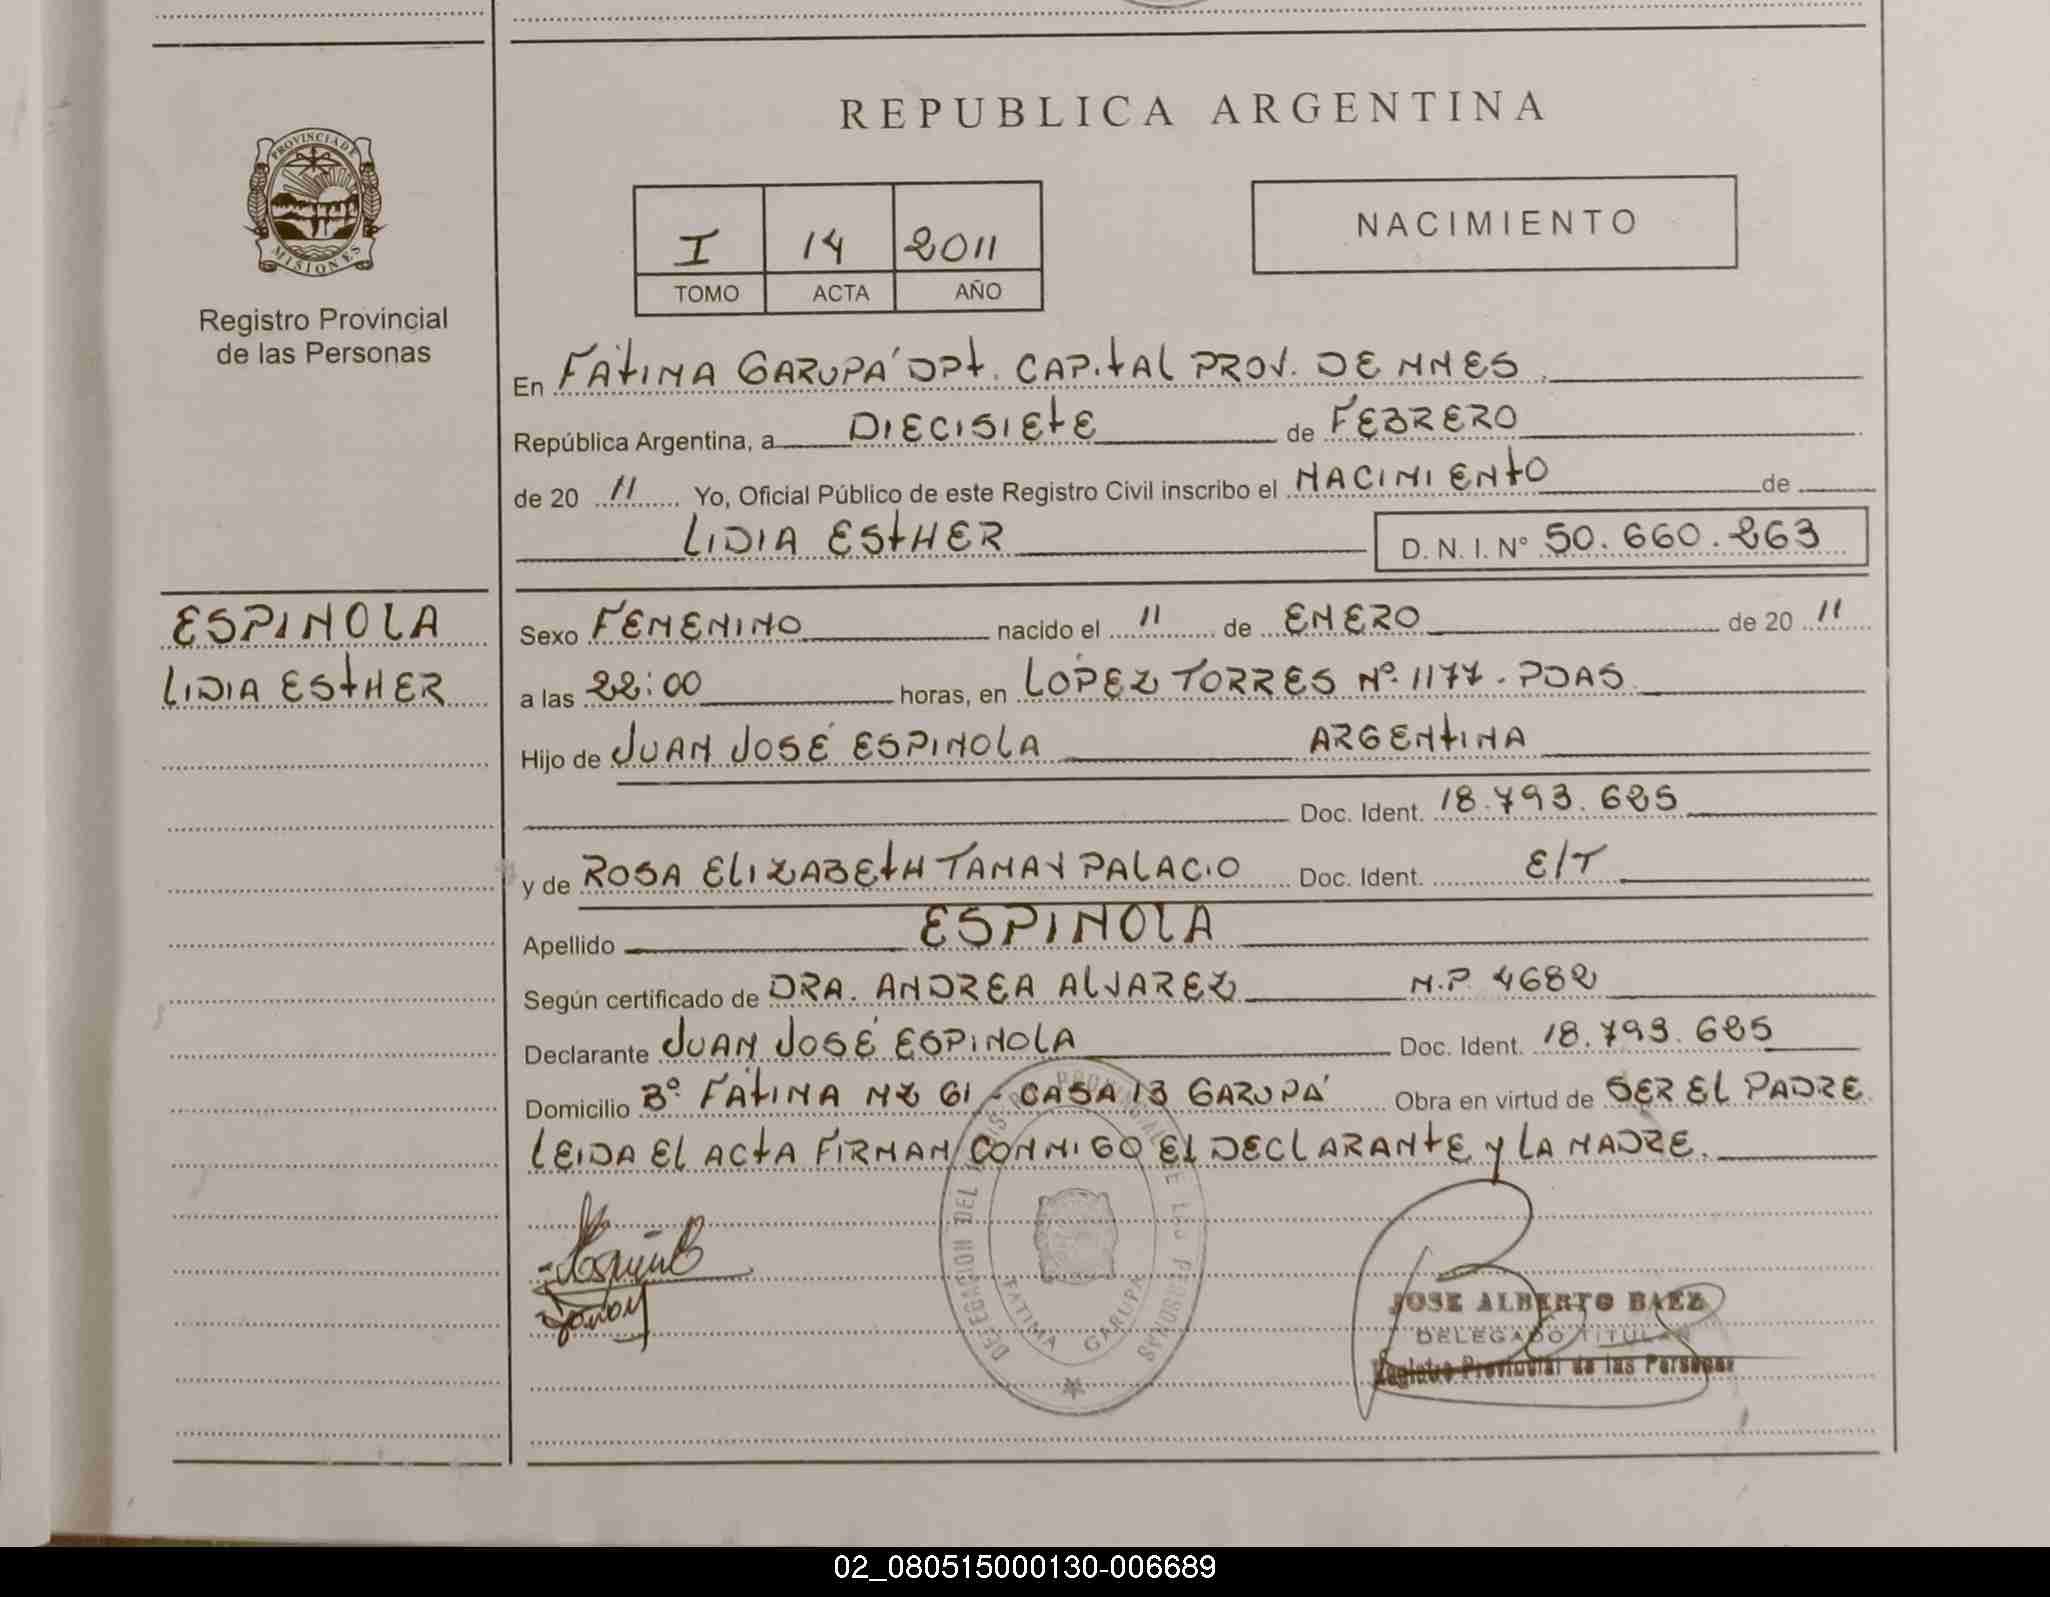 REPUBLICA ARGENTINA
PROVINCIA DE
MISIONES
Registro Provincial
de las Personas
NACIMIENTO
I 14 2011
TOMO ACTA AÑO
En FÁTIMA GARUPÁ DPT. CAPITAL PROV. DE MNES
República Argentina, a DIECISIETE de FEBRERO
de 20 11 Yo, Oficial Público de este Registro Civil inscribo el NACIMIENTO de
LIDIA ESTHER D. N. I. Nº 50.660.263
ESPINOLA
LIDIA ESTHER
Sexo FEMENINO nacido el 11 de ENERO de 20 11
a las 22:00 horas, en LÓPEZ TORRES Nº. 1177. PDAS
Hijo de JUAN JOSÉ ESPINOLA ARGENTINA
Doc. Ident. 18.793.625
y de ROSA ELIZABETH TAMAY PALACIO Doc. Ident. E/T
Apellido ESPINOLA
Según certificado de DRA. ANDREA ALVAREZ M.P. 4682
Declarante JUAN JOSÉ ESPINOLA Doc. Ident. 18.793.625
Domicilio Bº FÁTIMA MZ 61 - CASA 13 GARUPÁ Obra en virtud de SER EL PADRE
LEIDA EL ACTA FIRMAN CONMIGO EL DECLARANTE Y LA MADRE.
FATIMA GARUPA
JOSE ALBERTO BAEZ
DELEGADO TITULAR
Registro Provincial de las Personas
02_080515000130-006689